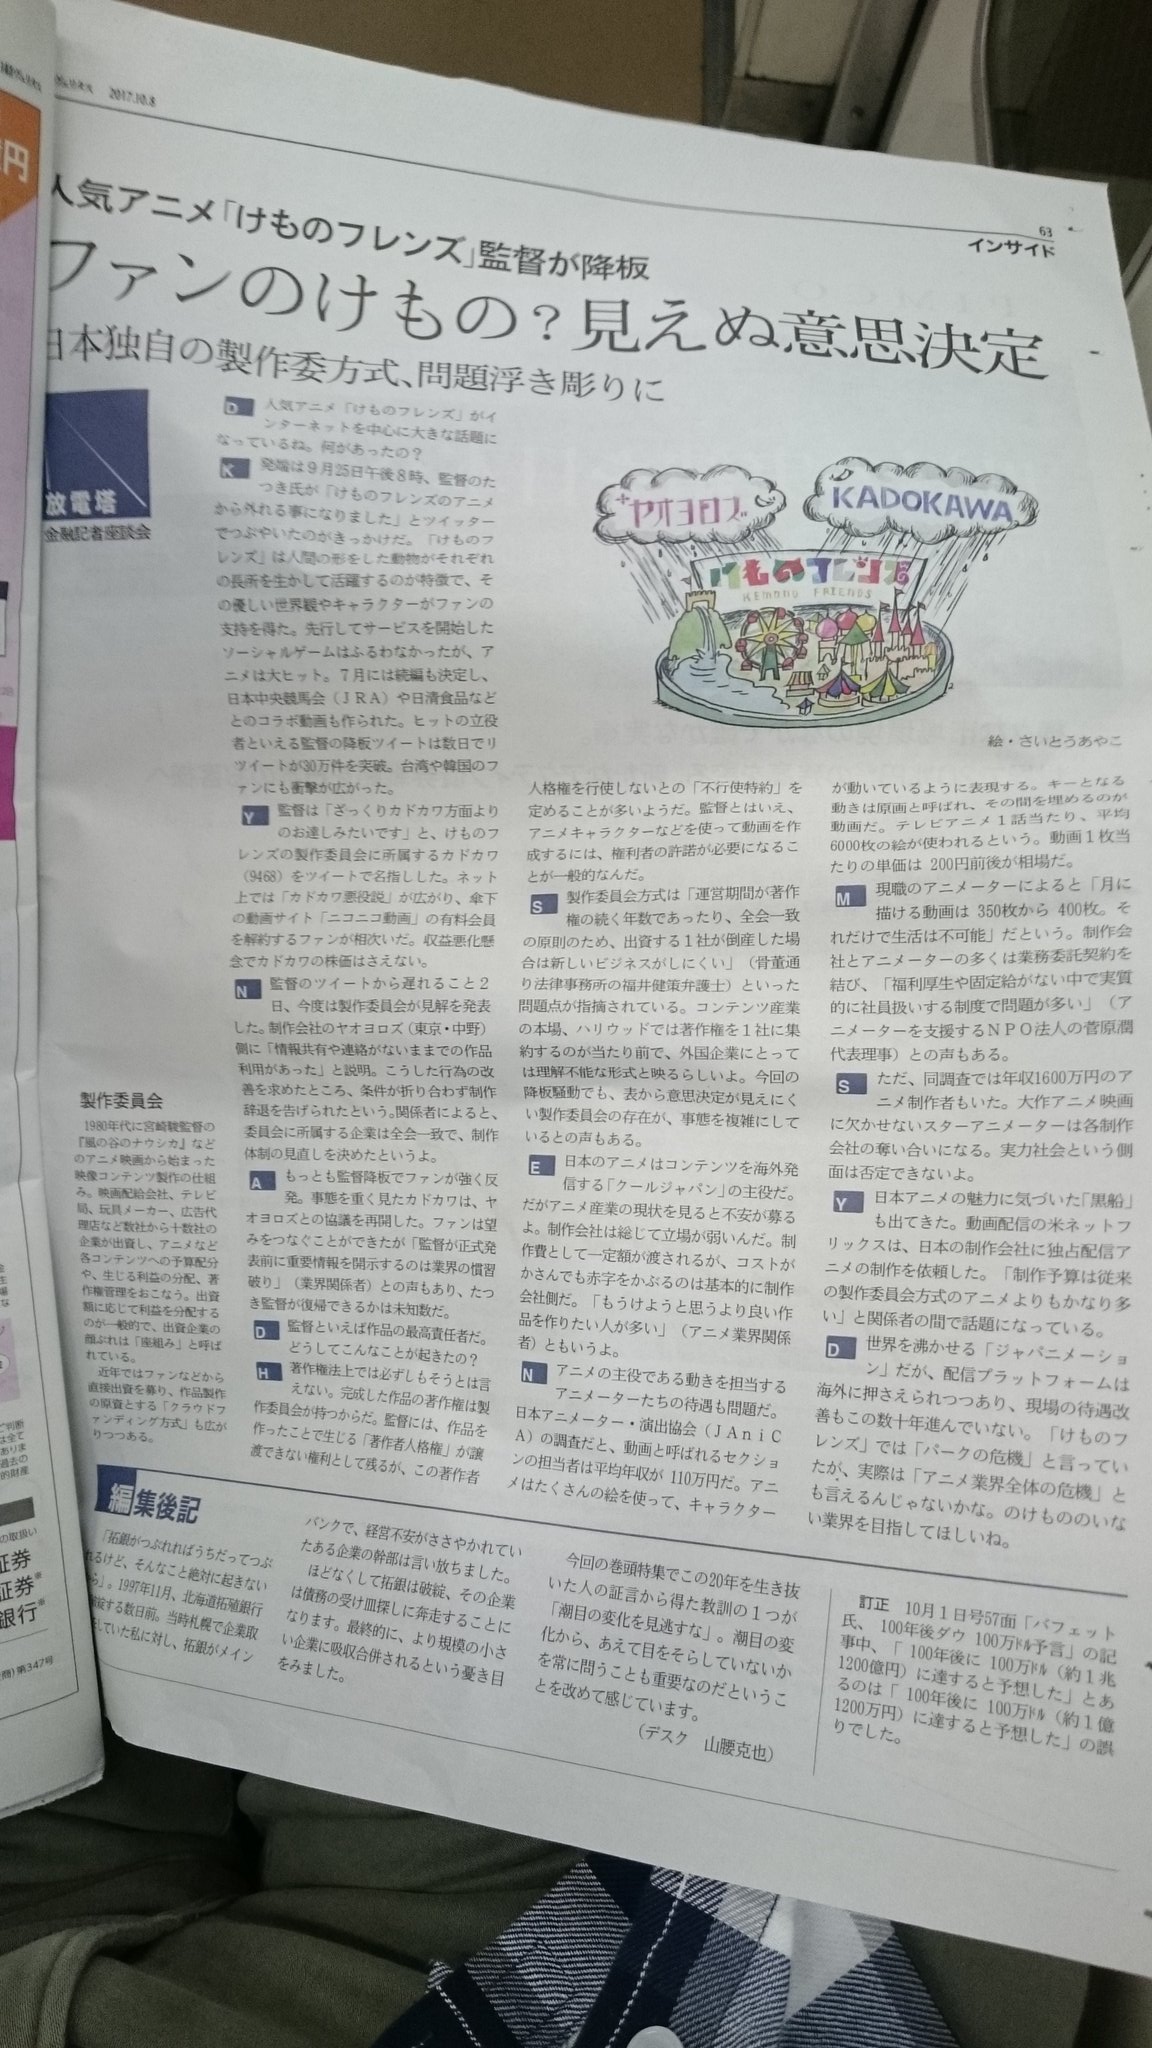 2017.10.8
63
インサイド
人気アニメ「けものフレンズ」監督が降板
ファンのけもの?見えぬ意思決定
日本独自の製作委方式、問題浮き彫りに
放電塔
金融記者座談会
ヤオヨロズ
KADOKAWA
けものフレンズ
KEMONO FRIENDS
絵・さいとうあやこ
D 人気アニメ「けものフレンズ」がイ
ンターネットを中心に大きな話題に
なっているね。何があったの?
K 発端は9月25日午後8時、監督のた
つき氏が「けものフレンズのアニメ
から外れる事になりました」とツイッター
でつぶやいたのがきっかけだ。「けものフ
レンズ」は人間の形をした動物がそれぞれ
の長所を生かして活躍するのが特徴で、そ
の優しい世界観やキャラクターがファンの
支持を得た。先行してサービスを開始した
ソーシャルゲームはふるわなかったが、ア
ニメは大ヒット。7月には続編も決定し、
日本中央競馬会(JRA)や日清食品など
とのコラボ動画も作られた。ヒットの立役
者といえる監督の降板ツイートは数日でリ
ツイートが30万件を突破。台湾や韓国のフ
ァンにも衝撃が広がった。
Y 監督は「ざっくりカドカワ方面より
のお達しみたいです」と、けものフ
レンズの製作委員会に所属するカドカワ
(9468)をツイートで名指しした。ネット
上では「カドカワ悪役説」が広がり、傘下
の動画サイト「ニコニコ動画」の有料会員
を解約するファンが相次いだ。収益悪化懸
念でカドカワの株価はさえない。
N 監督のツイートから遅れること2
日、今度は製作委員会が見解を発表
した。制作会社のヤオヨロズ(東京・中野)
側に「情報共有や連絡がないままでの作品
利用があった」と説明。こうした行為の改
善を求めたところ、条件が折り合わず制作
辞退を告げられたという。関係者によると、
委員会に所属する企業は全会一致で、制作
体制の見直しを決めたというよ。
A もっとも監督降板でファンが強く反
発。事態を重く見たカドカワは、ヤ
オヨロズとの協議を再開した。ファンは望
みをつなぐことができたが「監督が正式発
表前に重要情報を開示するのは業界の慣習
破り」(業界関係者)との声もあり、たつ
き監督が復帰できるかは未知数だ。
D 監督といえば作品の最高責任者だ。
どうしてこんなことが起きたの?
H 著作権法上では必ずしもそうとは言
えない。完成した作品の著作権は製
作委員会が持つからだ。監督には、作品を
作ったことで生じる「著作者人格権」が譲
渡できない権利として残るが、この著作者
人格権を行使しないとの「不行使特約」を
定めることが多いようだ。監督とはいえ、
アニメキャラクターなどを使って動画を作
成するには、権利者の許諾が必要になるこ
とが一般的なんだ。
S 製作委員会方式は「運営期間が著作
権の続く年数であったり、全会一致
の原則のため、出資する1社が倒産した場
合は新しいビジネスがしにくい」(骨董通
り法律事務所の福井健策弁護士)といった
問題点が指摘されている。コンテンツ産業
の本場、ハリウッドでは著作権を1社に集
約するのが当たり前で、外国企業にとって
は理解不能な形式と映るらしいよ。今回の
降板騒動でも、表から意思決定が見えにく
い製作委員会の存在が、事態を複雑にして
いるとの声もある。
E 日本のアニメはコンテンツを海外発
信する「クールジャパン」の主役だ。
だがアニメ産業の現状を見ると不安が募る
よ。制作会社は総じて立場が弱いんだ。制
作費として一定額が渡されるが、コストが
かさんでも赤字をかぶるのは基本的に制作
会社側だ。「もうけようと思うより良い作
品を作りたい人が多い」(アニメ業界関係
者)ともいうよ。
N アニメの主役である動きを担当する
アニメーターたちの待遇も問題だ。
日本アニメーター・演出協会(JAniC
A)の調査だと、動画と呼ばれるセクショ
ンの担当者は平均年収が110万円だ。アニ
メはたくさんの絵を使って、キャラクター
が動いているように表現する。キーとなる
動きは原画と呼ばれ、その間を埋めるのが
動画だ。テレビアニメ1話当たり、平均
6000枚の絵が使われるという。動画1枚当
たりの単価は200円前後が相場だ。
M 現職のアニメーターによると「月に
描ける動画は350枚から400枚。そ
れだけで生活は不可能」だという。制作会
社とアニメーターの多くは業務委託契約を
結び、「福利厚生や固定給がない中で実質
的に社員扱いする制度で問題が多い」(ア
ニメーターを支援するNPO法人の菅原潤
代表理事)との声もある。
S ただ、同調査では年収1600万円のア
ニメ制作者もいた。大作アニメ映画
に欠かせないスターアニメーターは各制作
会社の奪い合いになる。実力社会という側
面は否定できないよ。
Y 日本アニメの魅力に気づいた「黒船」
も出てきた。動画配信の米ネットフ
リックスは、日本の制作会社に独占配信ア
ニメの制作を依頼した。「制作予算は従来
の製作委員会方式のアニメよりもかなり多
い」と関係者の間で話題になっている。
D 世界を沸かせる「ジャパニメーショ
ン」だが、配信プラットフォームは
海外に押さえられつつあり、現場の待遇改
善もこの数十年進んでいない。「けものフ
レンズ」では「パークの危機」と言ってい
たが、実際は「アニメ業界全体の危機」と
も言えるんじゃないかな。のけもののいな
い業界を目指してほしいね。
製作委員会
1980年代に宮崎駿監督の
『風の谷のナウシカ』など
のアニメ映画から始まった
映像コンテンツ製作の仕組
み。映画配給会社、テレビ
局、玩具メーカー、広告代
理店など数社から十数社の
企業が出資し、アニメなど
各コンテンツへの予算配分
や、生じる利益の分配、著
作権管理をおこなう。出資
額に応じて利益を分配する
のが一般的で、出資企業の
顔ぶれは「座組み」と呼ば
れている。
近年ではファンなどから
直接出資を募り、作品製作
の原資とする「クラウドフ
ァンディング方式」も広が
りつつある。
編集後記
「拓銀がつぶれればうちだってつぶ
れるけど、そんなこと絶対に起きない
から」。1997年11月、北海道拓殖銀行
破綻する数日前。当時札幌で企業取
をしていた私に対し、拓銀がメイン
バンクで、経営不安がささやかれてい
たある企業の幹部は言い放ちました。
ほどなくして拓銀は破綻、その企業
は債務の受け皿探しに奔走することに
なります。最終的に、より規模の小さ
い企業に吸収合併されるという憂き目
をみました。
今回の巻頭特集でこの20年を生き抜
いた人の証言から得た教訓の1つが
「潮目の変化を見逃すな」。潮目の変
化から、あえて目をそらしていないか
を常に問うことも重要なのだというこ
とを改めて感じています。
(デスク 山腰克也)
訂正 10月1日号57面「バフェット
氏、100年後ダウ100万ドル予言」の記
事中、「100年後に100万ドル(約1兆
1200億円)に達すると予想した」とあ
るのは「100年後に100万ドル(約1億
1200万円)に達すると予想した」の誤
りでした。
円
証券
証券※
銀行※
商)第347号